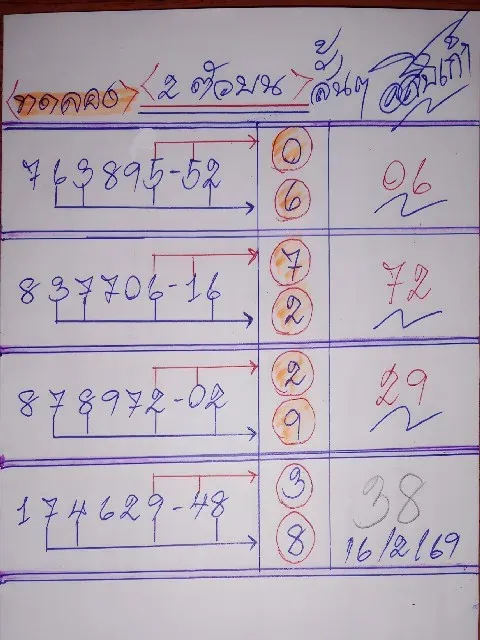 <ทดลอง> <2 ตัวบน> สั้นๆ
763895-52 0 6 06
837706-16 7 2 72
878972-02 2 9 29
174629-48 3 8 38
16/2/69